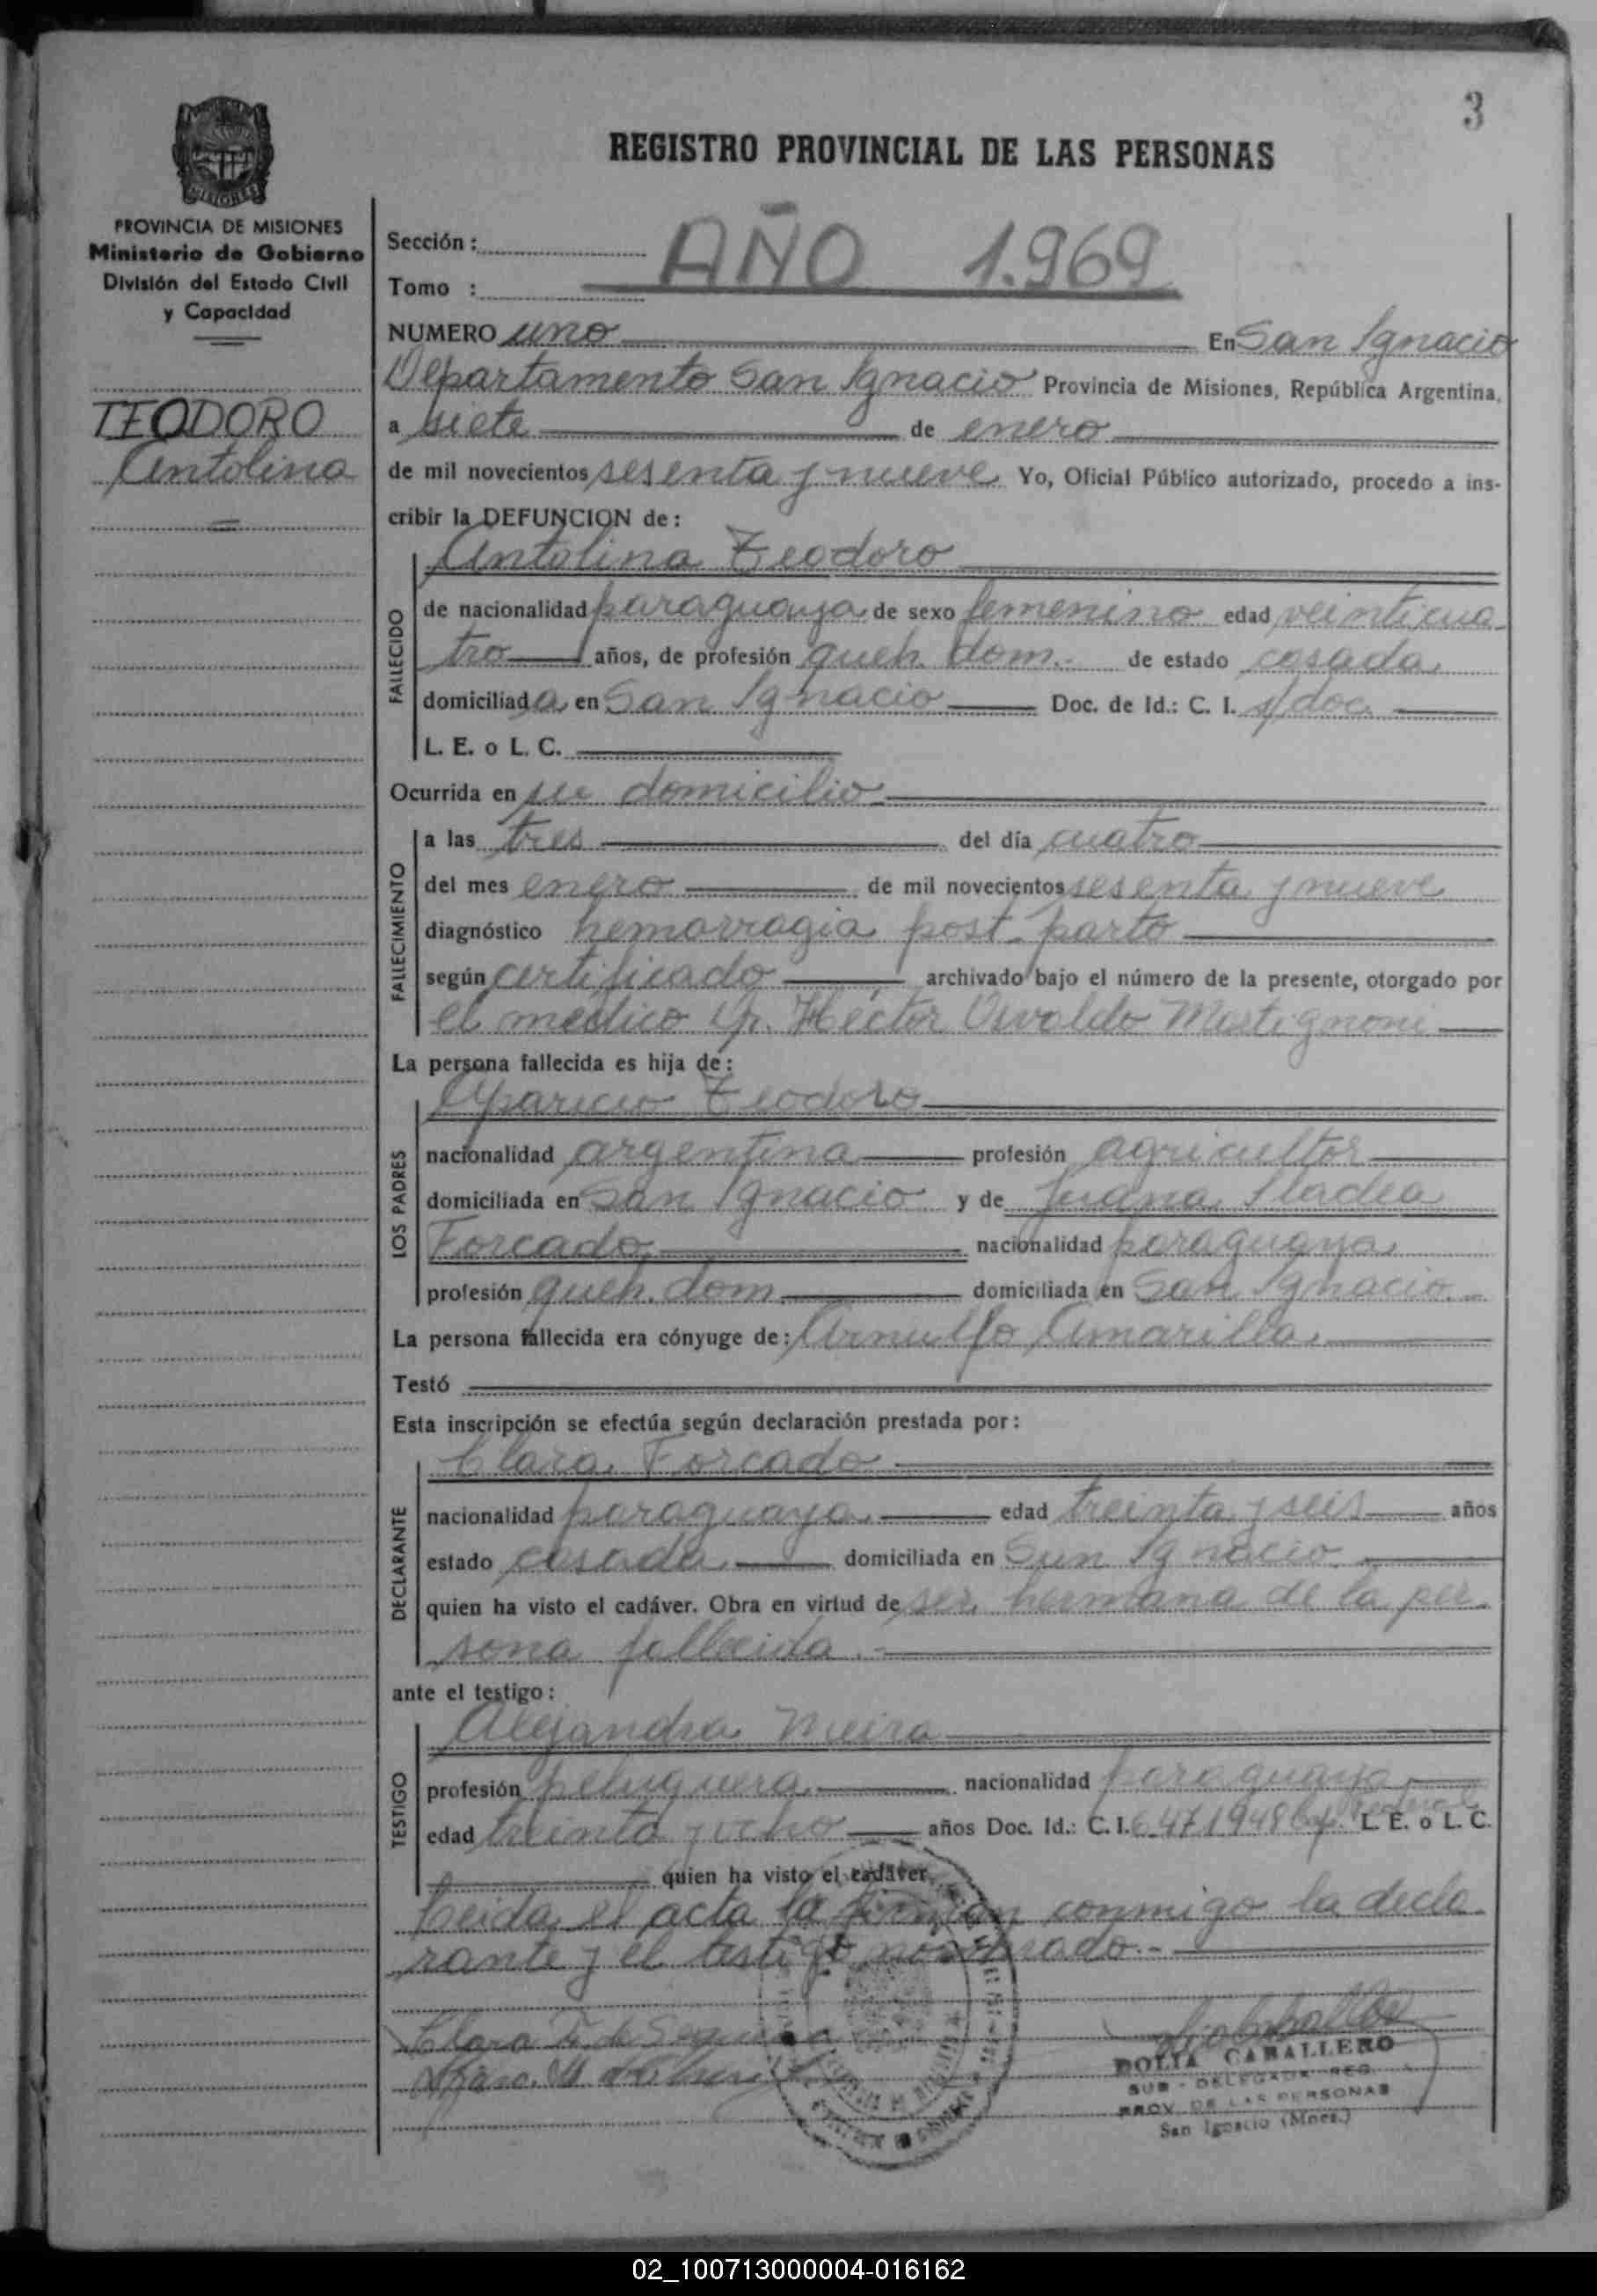 3
REGISTRO PROVINCIAL DE LAS PERSONAS
MISIONES
PROVINCIA DE MISIONES
Ministerio de Gobierno
División del Estado Civil
y Capacidad
TEODORO
Antolina
Sección :
AÑO 1.969
Tomo :
NUMERO uno En San Ignacio
Departamento San Ignacio Provincia de Misiones, República Argentina,
a siete de enero
de mil novecientos sesenta y nueve Yo, Oficial Público autorizado, procedo a ins-
cribir la DEFUNCION de :
FALLECIDO
Antolina Teodoro
de nacionalidad paraguaya de sexo femenino edad veinticua
tro años, de profesión queh. dom. de estado casada
domiciliada en San Ignacio Doc. de Id.: C. I. s/doc.
L. E. o L. C.
Ocurrida en su domicilio
FALLECIMIENTO
a las tres del día cuatro
del mes enero de mil novecientos sesenta y nueve
diagnóstico hemorragia post-parto
según certificado archivado bajo el número de la presente, otorgado por
el médico Dr. Héctor Osvaldo
La persona fallecida es hija de :
LOS PADRES
Aparicio Teodoro
nacionalidad argentina profesión agricultor
domiciliada en San Ignacio y de Juana
Forcado nacionalidad paraguaya
profesión queh. dom. domiciliada en San Ignacio.-
La persona fallecida era cónyuge de : Arnulfo Amarilla
Testó
Esta inscripción se efectúa según declaración prestada por :
DECLARANTE
Clara Forcado
nacionalidad paraguaya edad treinta y seis años
estado casada domiciliada en San Ignacio
quien ha visto el cadáver. Obra en virtud de ser hermana de la per
sona fallecida.-
ante el testigo :
TESTIGO
Alejandra Meira
profesión peluquera nacionalidad paraguaya
edad treinta y ocho años Doc. Id.: C. I. 6.471948 Federal L. E. o L. C.
quien ha visto el cadáver.
Leida el acta la firman conmigo la decla
rante y el testigo nombrado.-
Clara F. de
DOLIA CABALLERO
SUB - DELEGADA REG.
PROV. DE LAS PERSONAS
San Ignacio (Mnes.)
02_100713000004-016162